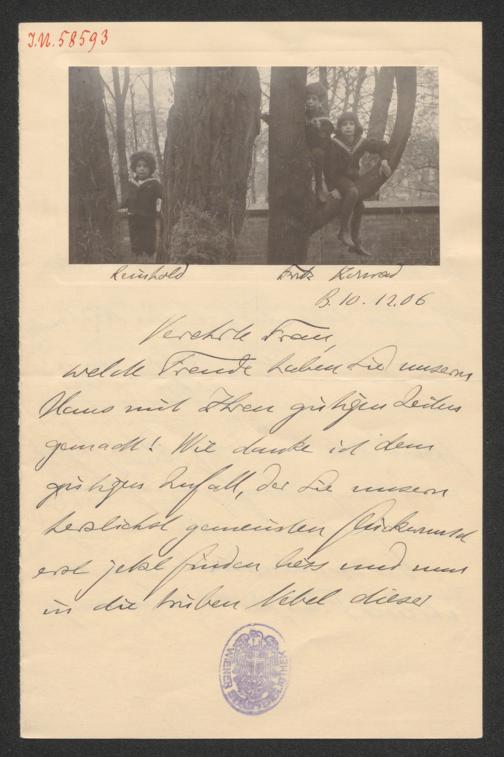 I.N. 58593
Reinhold
Fritz Konrad
B. 10. 12.06
Verehrte Frau,
welche Freude haben Sie unserm
Haus mit Ihren gütigen Zeilen
gemacht! Wie danke ich dem
gütigen Zufall, der Sie unsern
herzlichst gemeinten Glückwunsch
erst jetzt finden liess und nun
in die trüben Nebel dieser
WIENER STADTBIBLIOTHEK